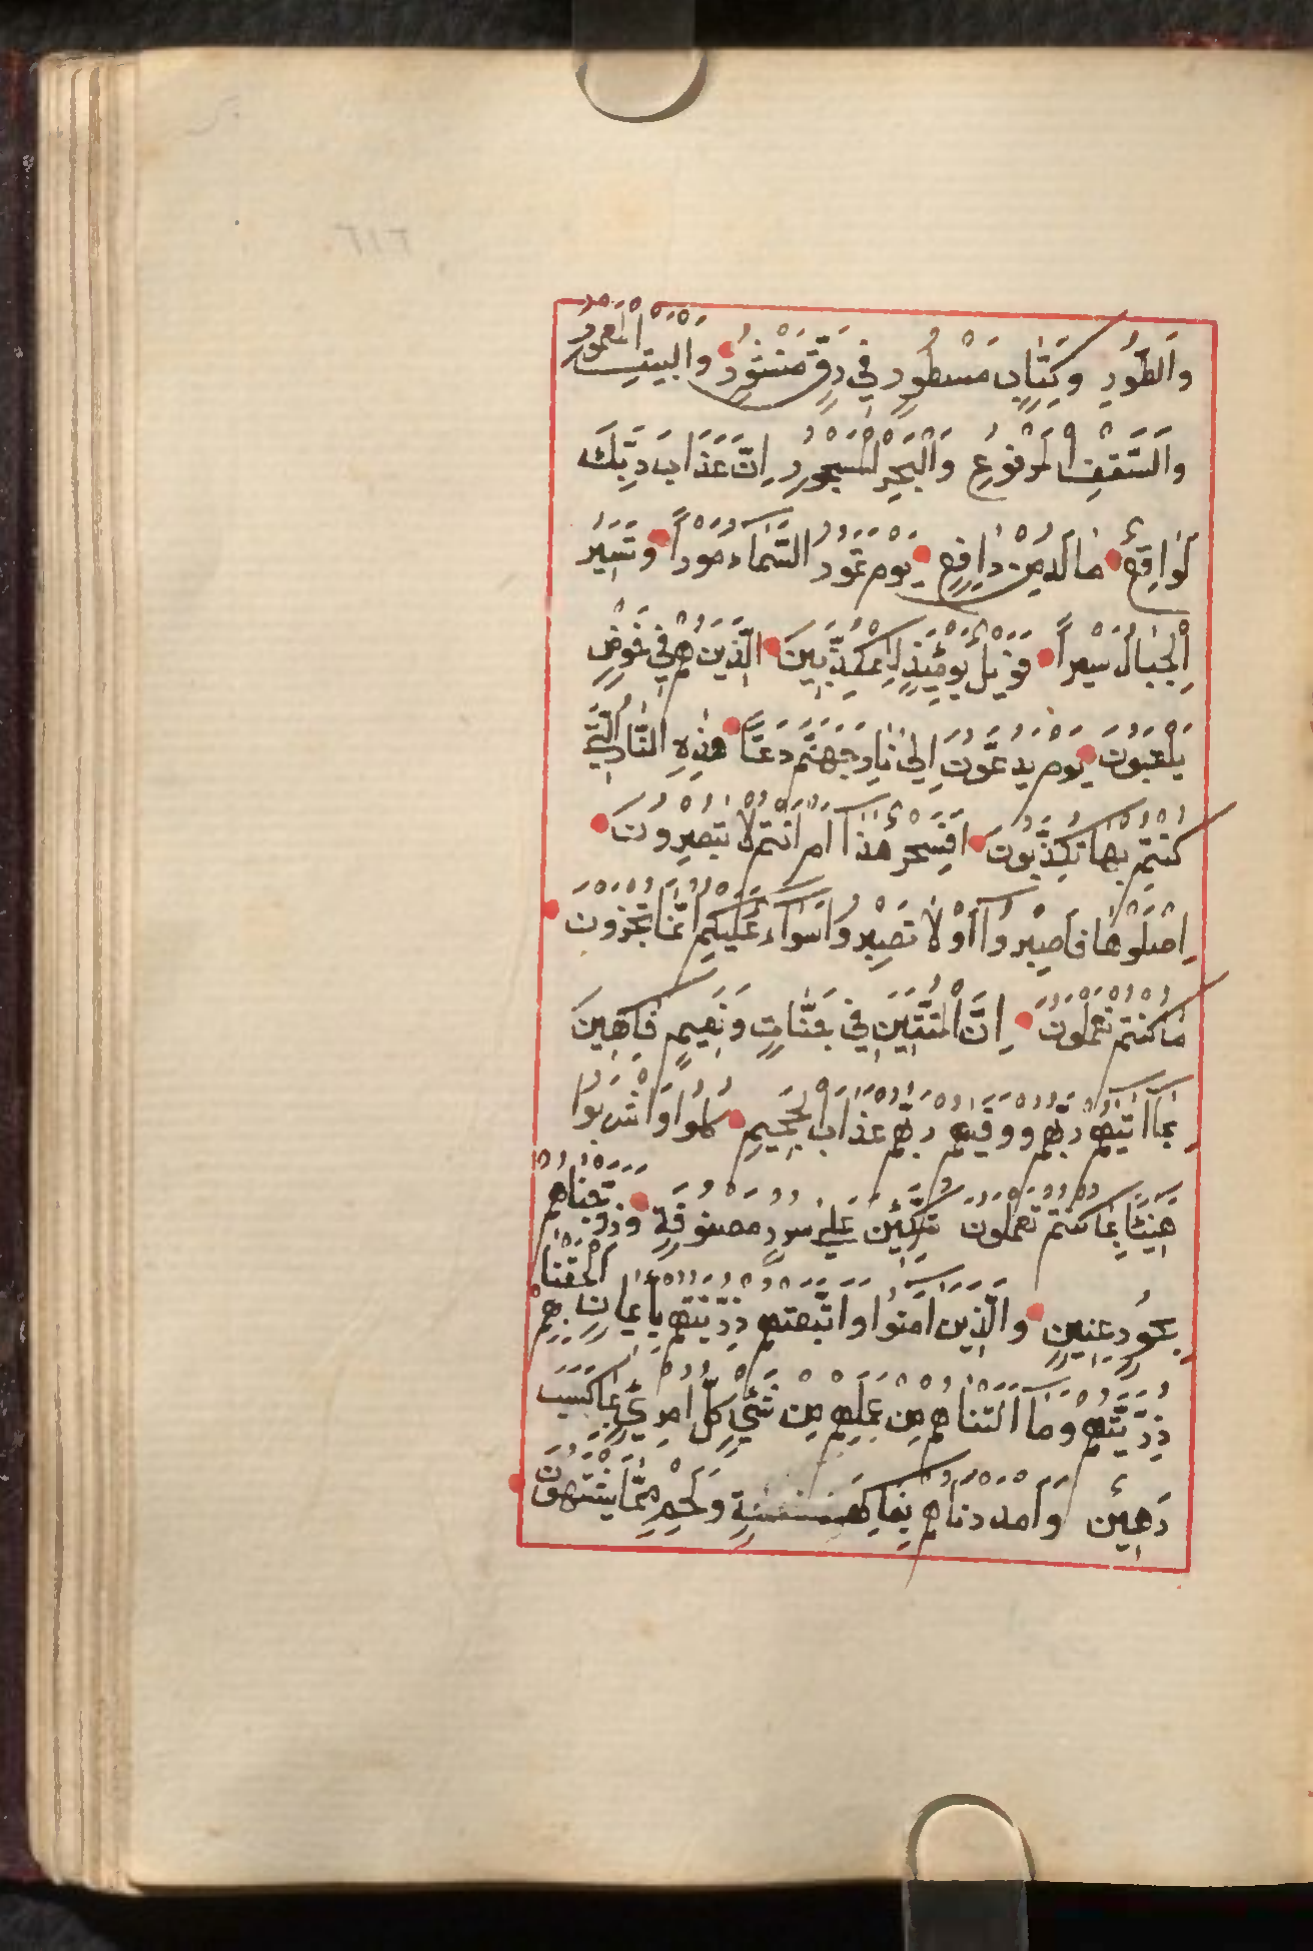 وَالطُّورِ وَكِتَابٍ مَسْطُورٍ فِي رَقٍّ مَنْشُورٍ وَالْبَيْتِ الْمَعْمُورِ
وَالسَّقْفِ الْمَرْفُوعِ وَالْبَحْرِ الْمَسْجُورِ اِنَّ عَذَابَ رَبِّكَ
لَوَاقِعٌ مَا لَهُ مِنْ دَافِعٍ يَوْمَ تَمُورُ السَّمَآءُ مَوْراً وَتَسِيرُ
الْجِبَالُ سَيْراً فَوَيْلٌ يَوْمَئِذٍ لِلْمُكَذِّبِينَ الَّذِينَ هُمْ فِي خَوْضٍ
يَلْعَبُونَ يَوْمَ يُدَعُّونَ اِلَى نَارِ جَهَنَّمَ دَعّاً هٰذِهِ النَّارُ الَّتِي
كُنْتُمْ بِهَا تُكَذِّبُونَ اَفَسِحْرٌ هٰذَآ اَمْ اَنْتُمْ لَا تُبْصِرُونَ
اِصْلَوْهَا فَاصْبِرُوآ اَوْ لَا تَصْبِرُوا سَوَآءٌ عَلَيْكُمْ اِنَّمَا تُجْزَوْنَ
مَا كُنْتُمْ تَعْمَلُونَ اِنَّ الْمُتَّقِينَ فِي جَنَّاتٍ وَنَعِيمٍ فَاكِهِينَ
بِمَآ اٰتٰيهُمْ رَبُّهُمْ وَوَقٰيهُمْ رَبُّهُمْ عَذَابَ الْجَحِيمِ كُلُوا وَاشْرَبُوا
هَنِيئاً بِمَا كُنْتُمْ تَعْمَلُونَ مُتَّكِئِينَ عَلَى سُرُرٍ مَصْفُوفَةٍ وَزَوَّجْنَاهُمْ
بِحُورٍ عِينٍ وَالَّذِينَ آمَنُوا وَاتَّبَعَتْهُمْ ذُرِّيَّتُهُمْ بِاِيمَانٍ اَلْحَقْنَا بِهِمْ
ذُرِّيَّتَهُمْ وَمَآ اَلَتْنَاهُمْ مِنْ عَمَلِهِمْ مِنْ شَيْءٍ كُلُّ امْرِئٍ بِمَا كَسَبَ
رَهِينٌ وَاَمْدَدْنَاهُمْ بِفَاكِهَةٍ وَلَحْمٍ مِمَّا يَشْتَهُونَ